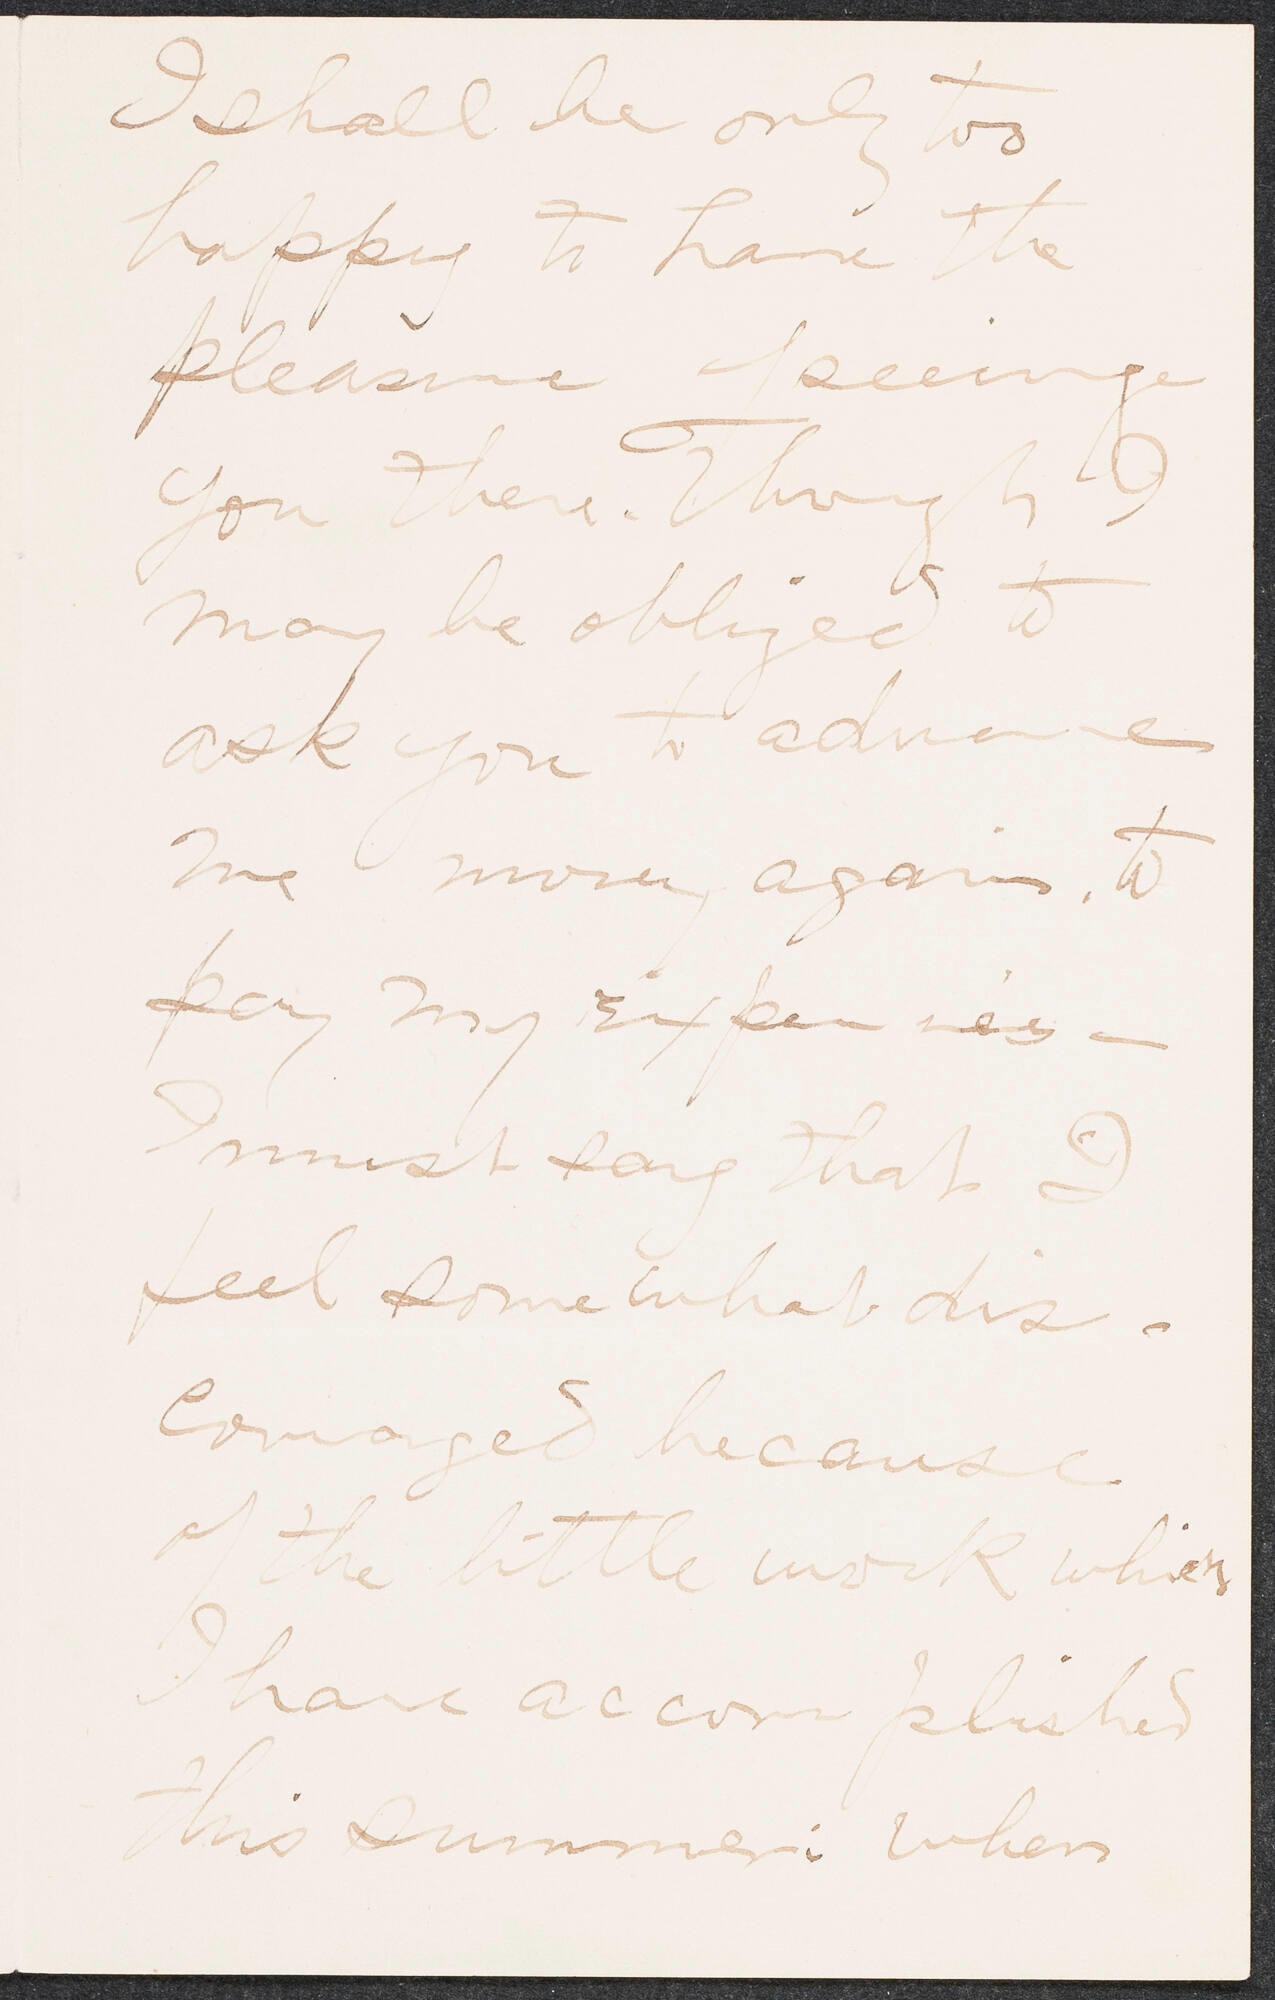 I shall be only too
happy to have the
pleasure of seeing
you there. Though I
may be obliged to
ask you to advance
me money again. to
pay my expenses –
I must say that I
feel somewhat dis-
couraged because
of the little work which
I have accomplished
this summer: when